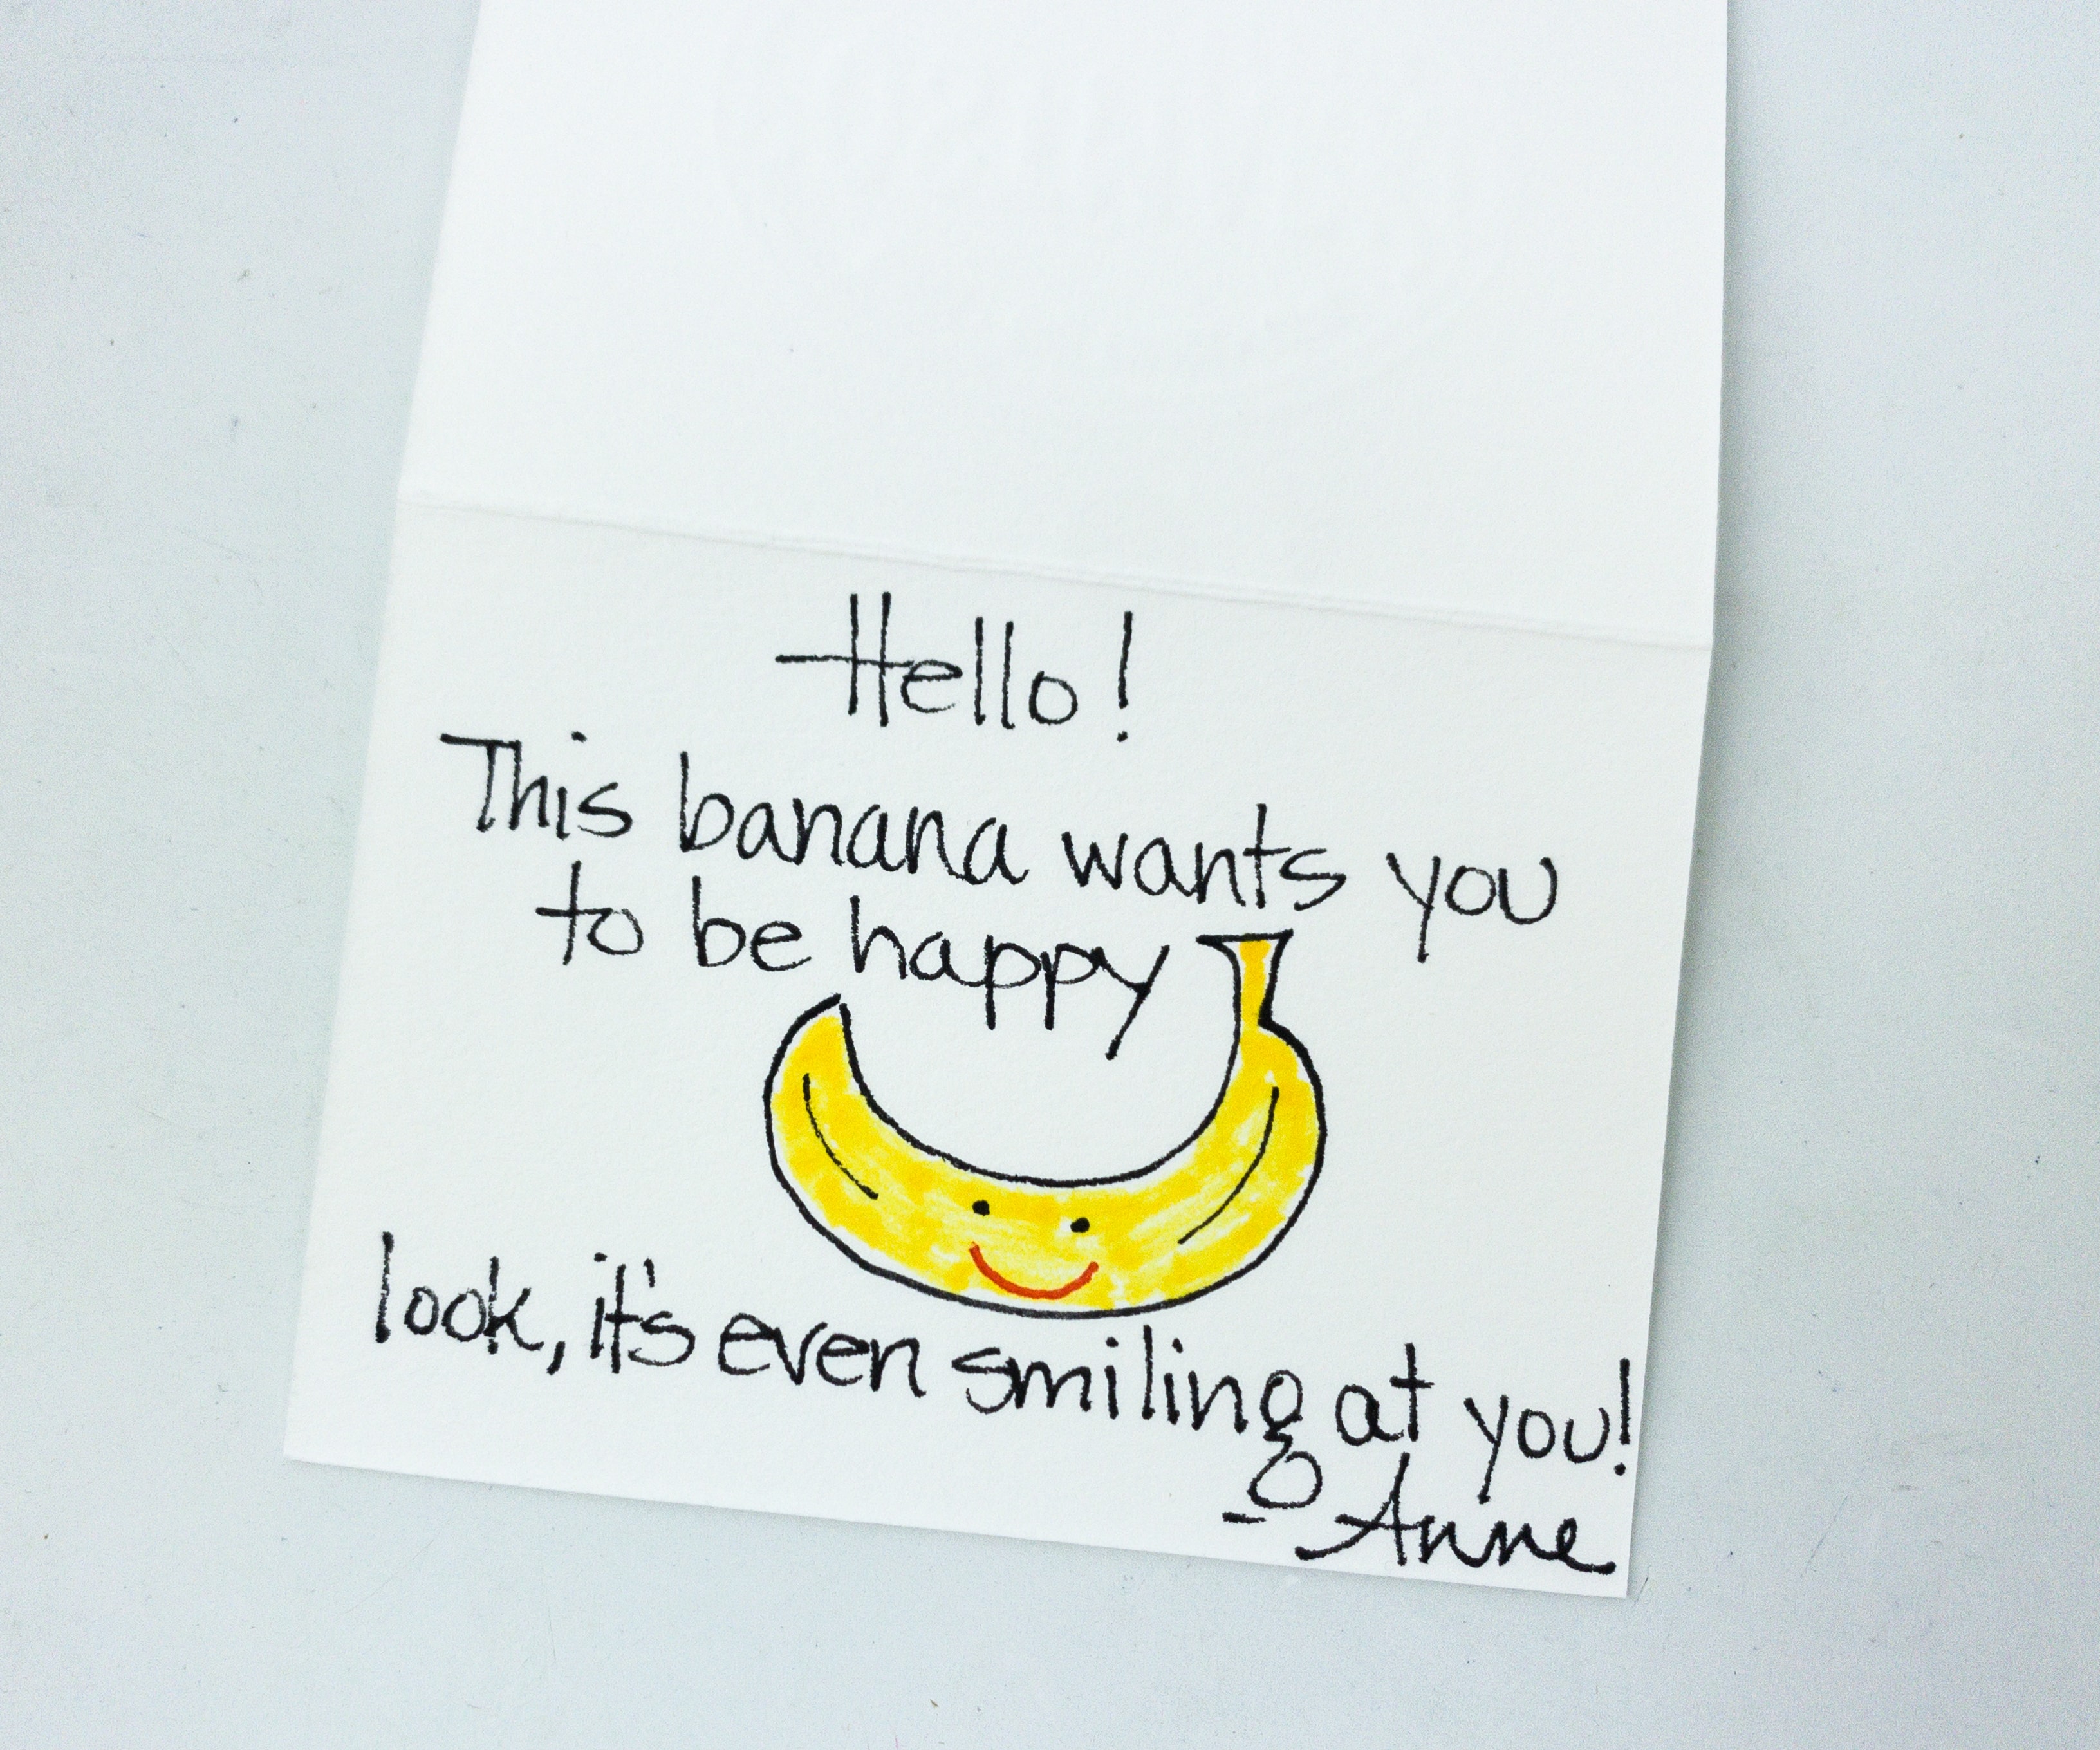 Hello!
This banana wants you
to be happy
look, it's even smiling at you!
- Anne